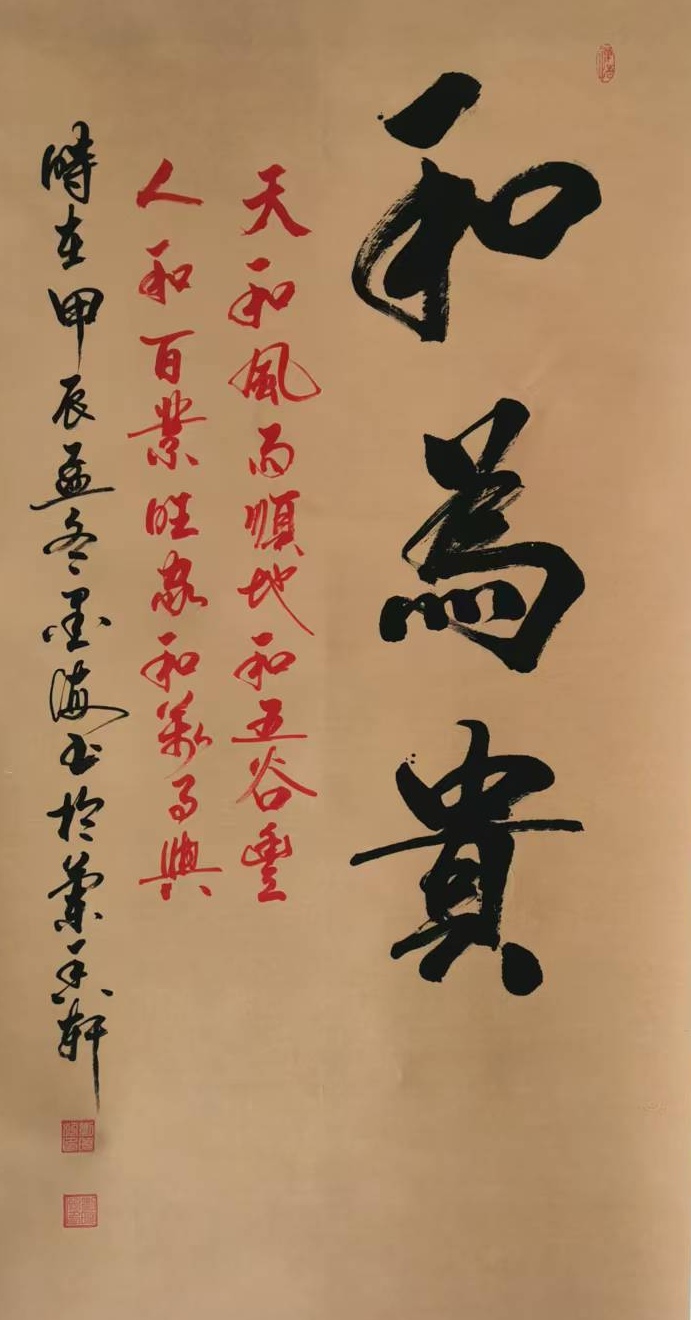 和為貴
天和風雨順地和五谷豐
人和百業旺家和萬事興
時在甲辰孟冬墨海书於蘭香軒